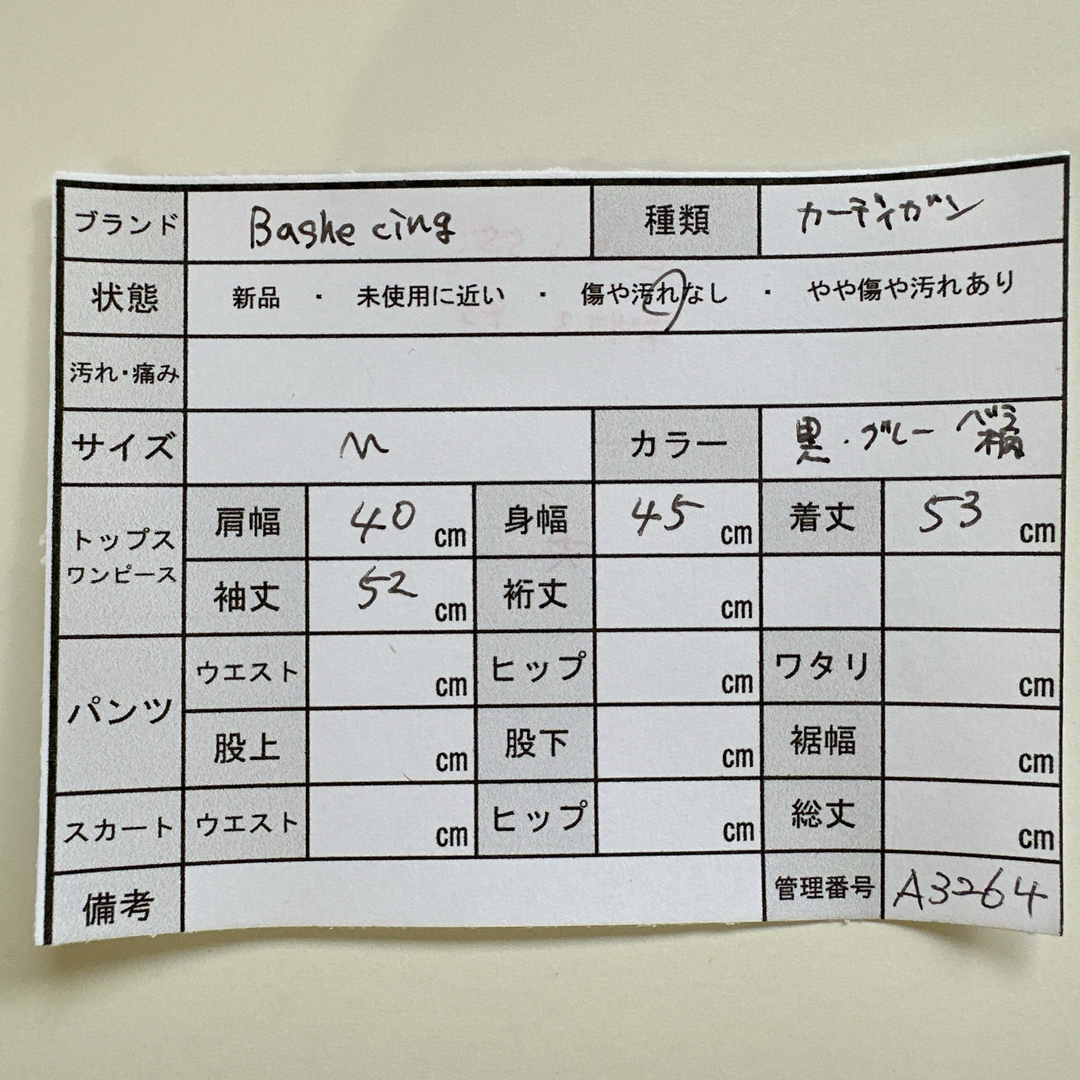 ブランド Bashe cing 種類 カーディガン
状態 新品 ・ 未使用に近い ・ 傷や汚れなし ・ やや傷や汚れあり
汚れ・痛み
サイズ M カラー 黒・グレー
トップス ワンピース 肩幅 40 cm 身幅 45 cm 着丈 53 cm
袖丈 52 cm 裄丈 cm
パンツ ウエスト cm ヒップ cm ワタリ cm
股上 cm 股下 cm 裾幅 cm
スカート ウエスト cm ヒップ cm 総丈 cm
備考 管理番号 A3264